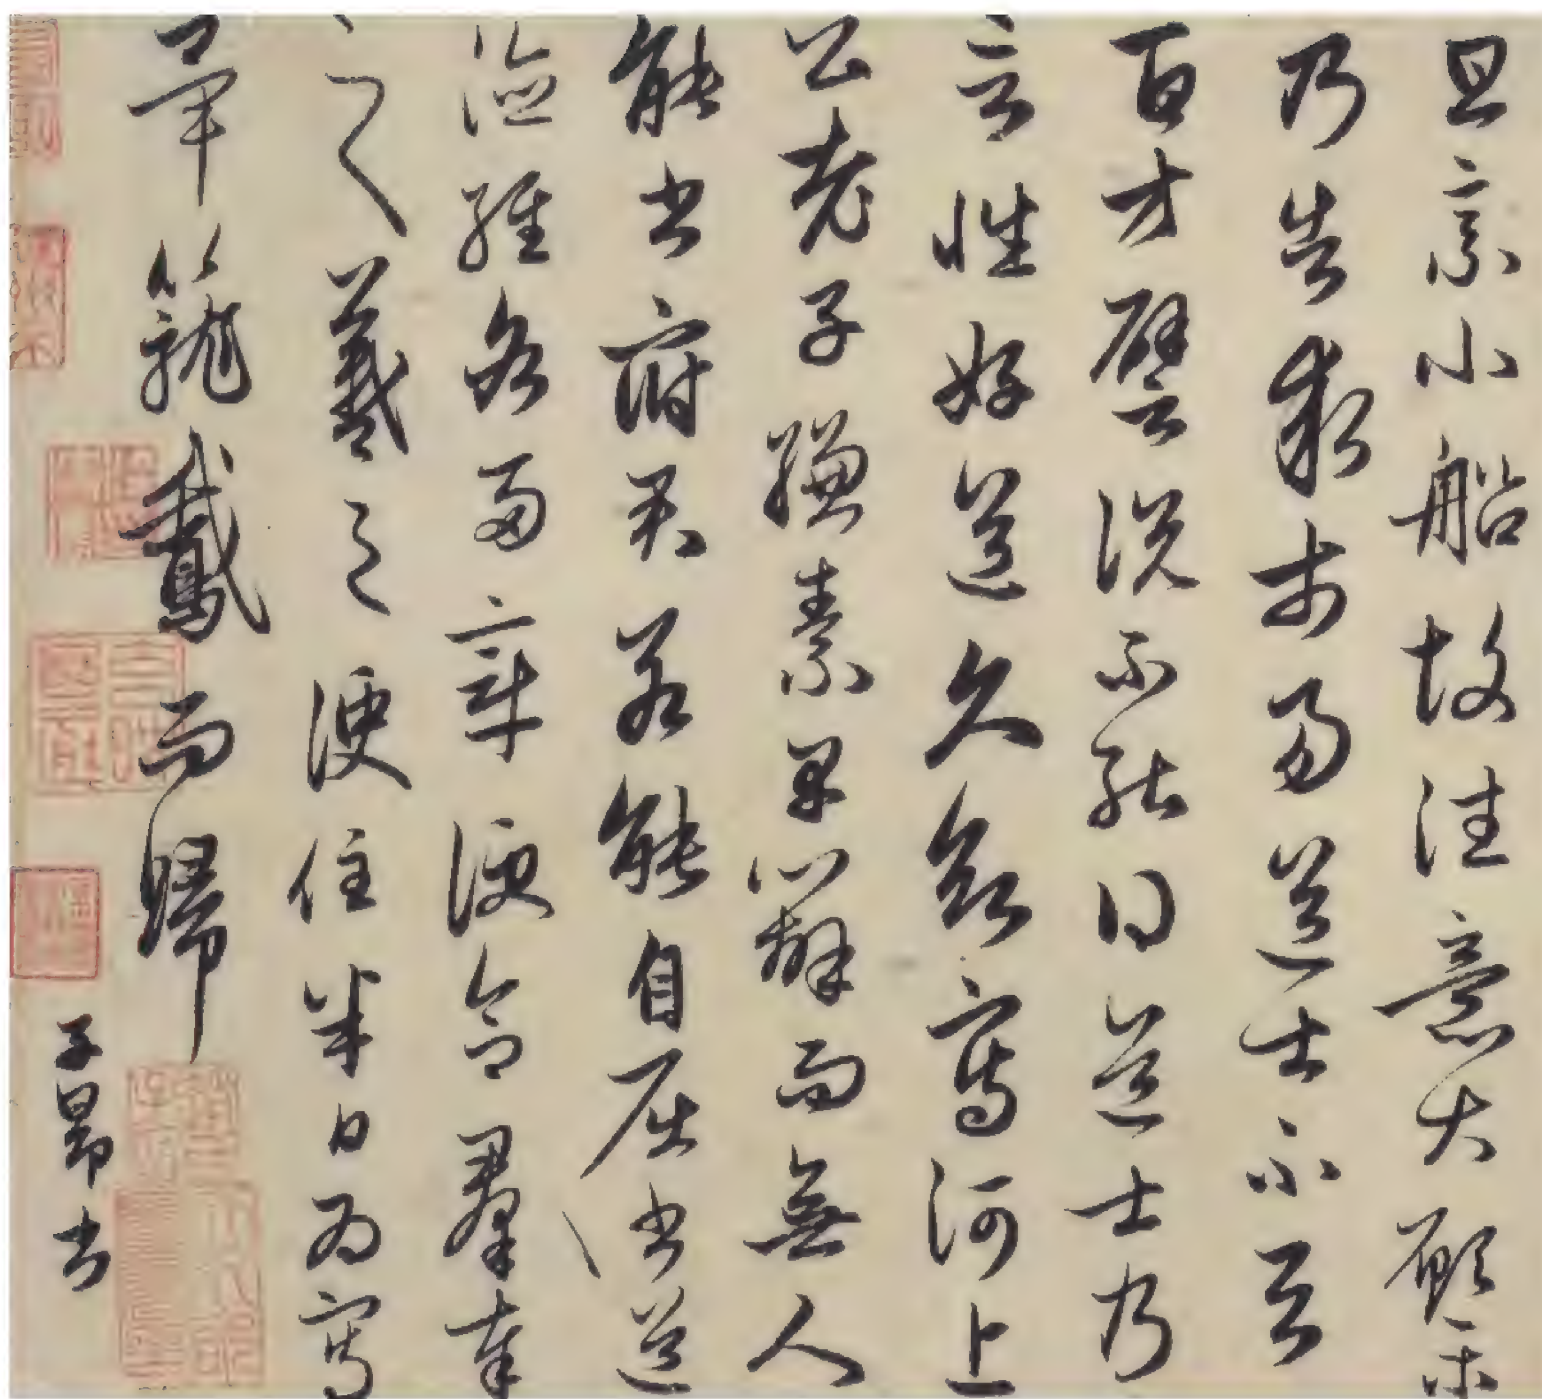 旦乘小船故往意大願樂
乃告求市易道士不與
百方譬說不能得道士乃
言性好道久欲寫河上
公老子縑素早辦而無人
能書府君若能自屈書道
德經各兩章便合羣奉
之羲之便住半日為寫
畢籠鵝而歸
子昂書